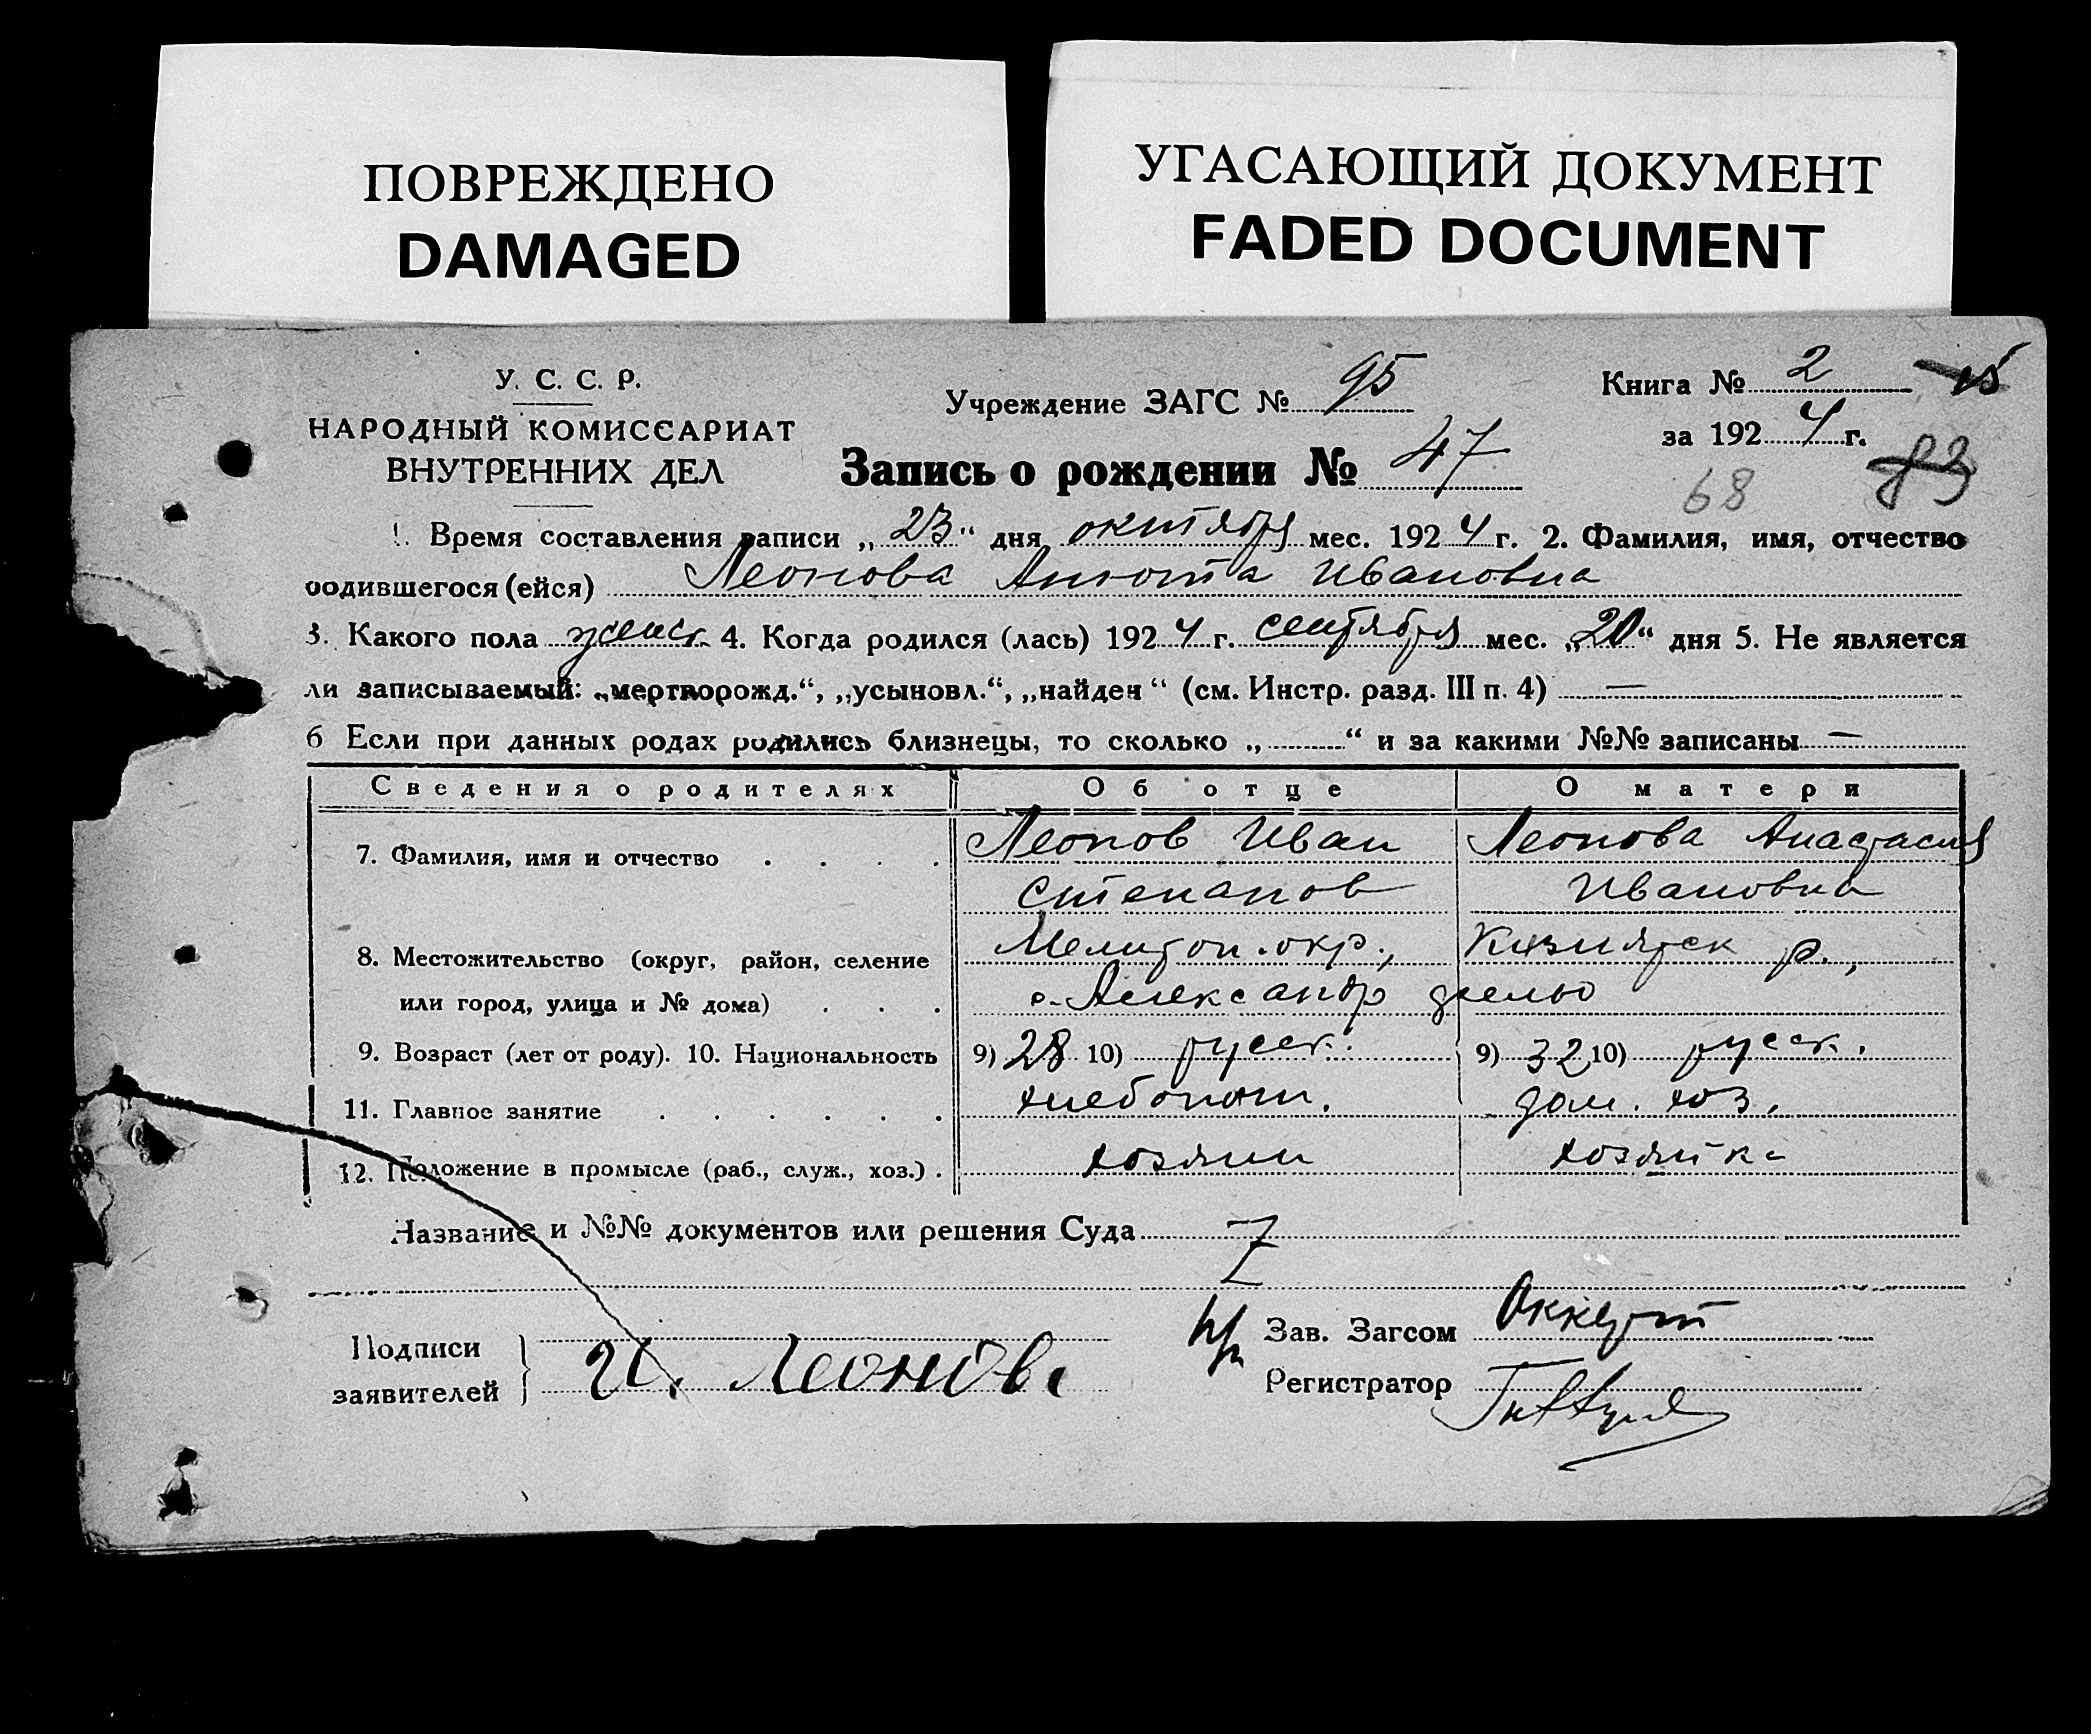 ПОВРЕЖДЕНО
DAMAGED
УГАСАЮЩИЙ ДОКУМЕНТ
FADED DOCUMENT
У. С. С. Р.
НАРОДНЫЙ КОМИССАРИАТ
ВНУТРЕННИХ ДЕЛ
Учреждение ЗАГС № 95
Книга № 2 15
за 1924 г.
Запись о рождении № 47
68 83
1. Время составления записи „23“ дня октября мес. 1924 г. 2. Фамилия, имя, отчество
родившегося (ейся) Леонова Анюта Ивановна
3. Какого пола женск. 4. Когда родился (лась) 1924 г. сентября мес. „20“ дня 5. Не является
ли записываемый: „мертворожд.“, „усыновл.“, „найден“ (см. Инстр. разд. III п. 4) —
6 Если при данных родах родились близнецы, то сколько „ “ и за какими №№ записаны —
Сведения о родителях Об отце О матери
7. Фамилия, имя и отчество Леонов Иван Леонова Анастасия
Степанов Ивановна
8. Местожительство (округ, район, селение Мелитоп. окр., р.,
или город, улица и № дома) Александр
9. Возраст (лет от роду). 10. Национальность 9) 28 10) русск. 9) 32 10) русск.
11. Главное занятие хлебопаш. дом. хоз.
12. Положение в промысле (раб., служ., хоз.) хозяин хозяйка
Название и №№ документов или решения Суда Z
Подписи
заявителей } И. Леонов
Зав. Загсом
Регистратор